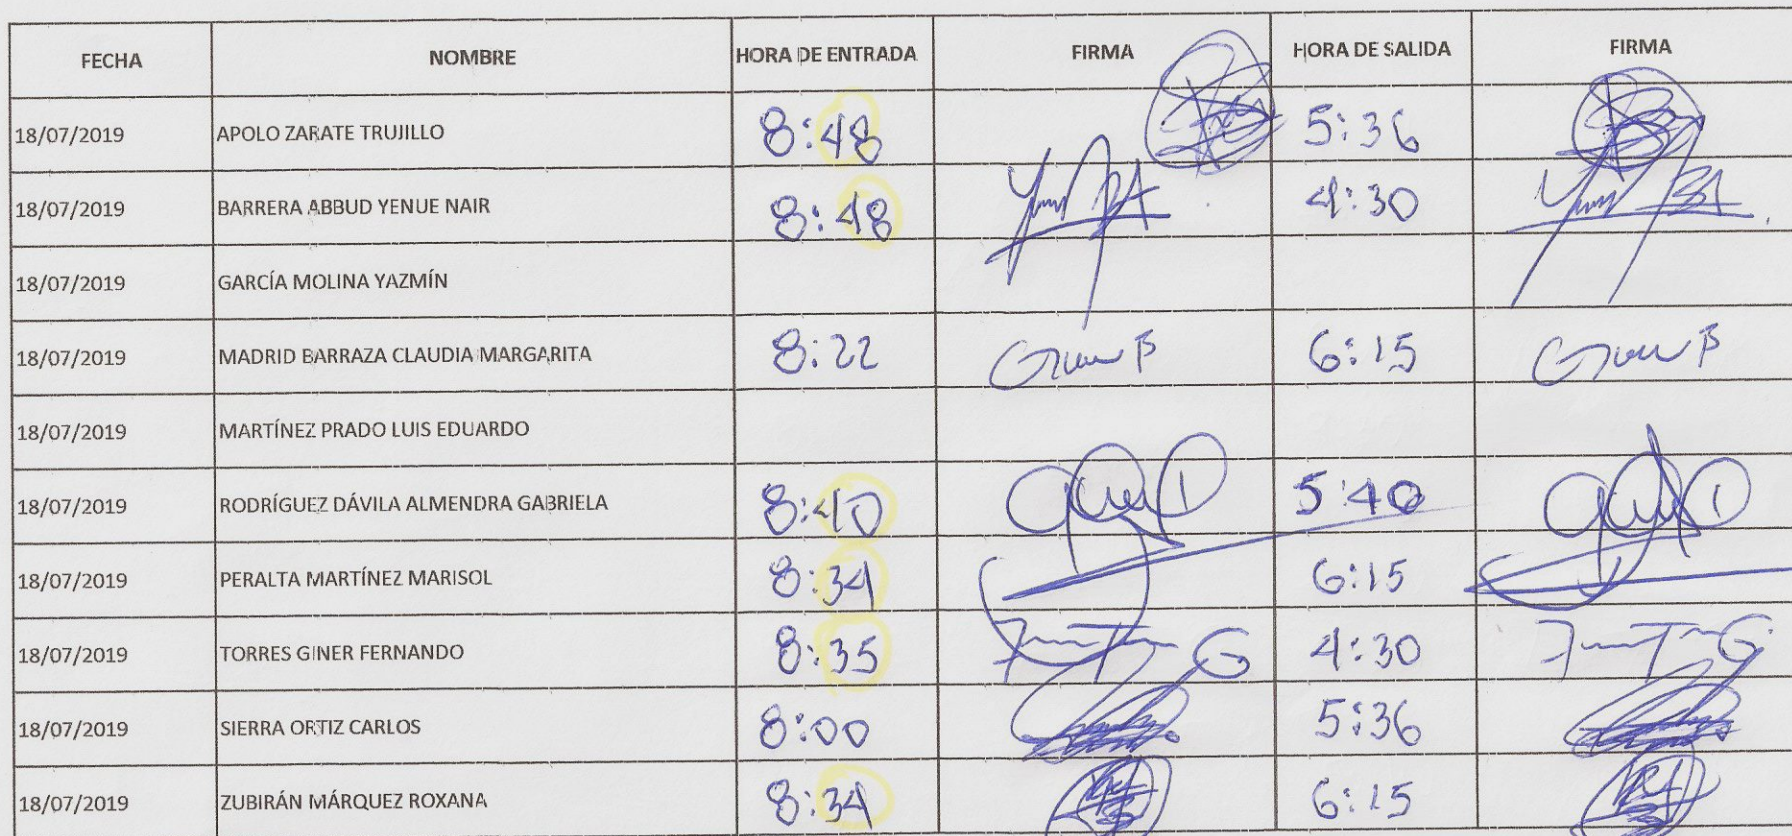 FECHA NOMBRE HORA DE ENTRADA FIRMA HORA DE SALIDA FIRMA
18/07/2019 APOLO ZARATE TRUJILLO 8:48 5:36
18/07/2019 BARRERA ABBUD YENUE NAIR 8:48 4:30
18/07/2019 GARCÍA MOLINA YAZMÍN
18/07/2019 MADRID BARRAZA CLAUDIA MARGARITA 8:22 6:15
18/07/2019 MARTÍNEZ PRADO LUIS EDUARDO
18/07/2019 RODRÍGUEZ DÁVILA ALMENDRA GABRIELA 8:40 5:40
18/07/2019 PERALTA MARTÍNEZ MARISOL 8:34 6:15
18/07/2019 TORRES GINER FERNANDO 8:35 4:30
18/07/2019 SIERRA ORTIZ CARLOS 8:00 5:36
18/07/2019 ZUBIRÁN MÁRQUEZ ROXANA 8:34 6:15